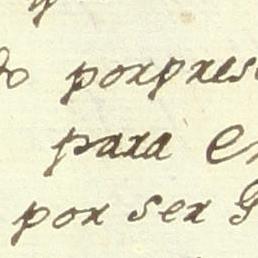 do porpres
para en
por ser G